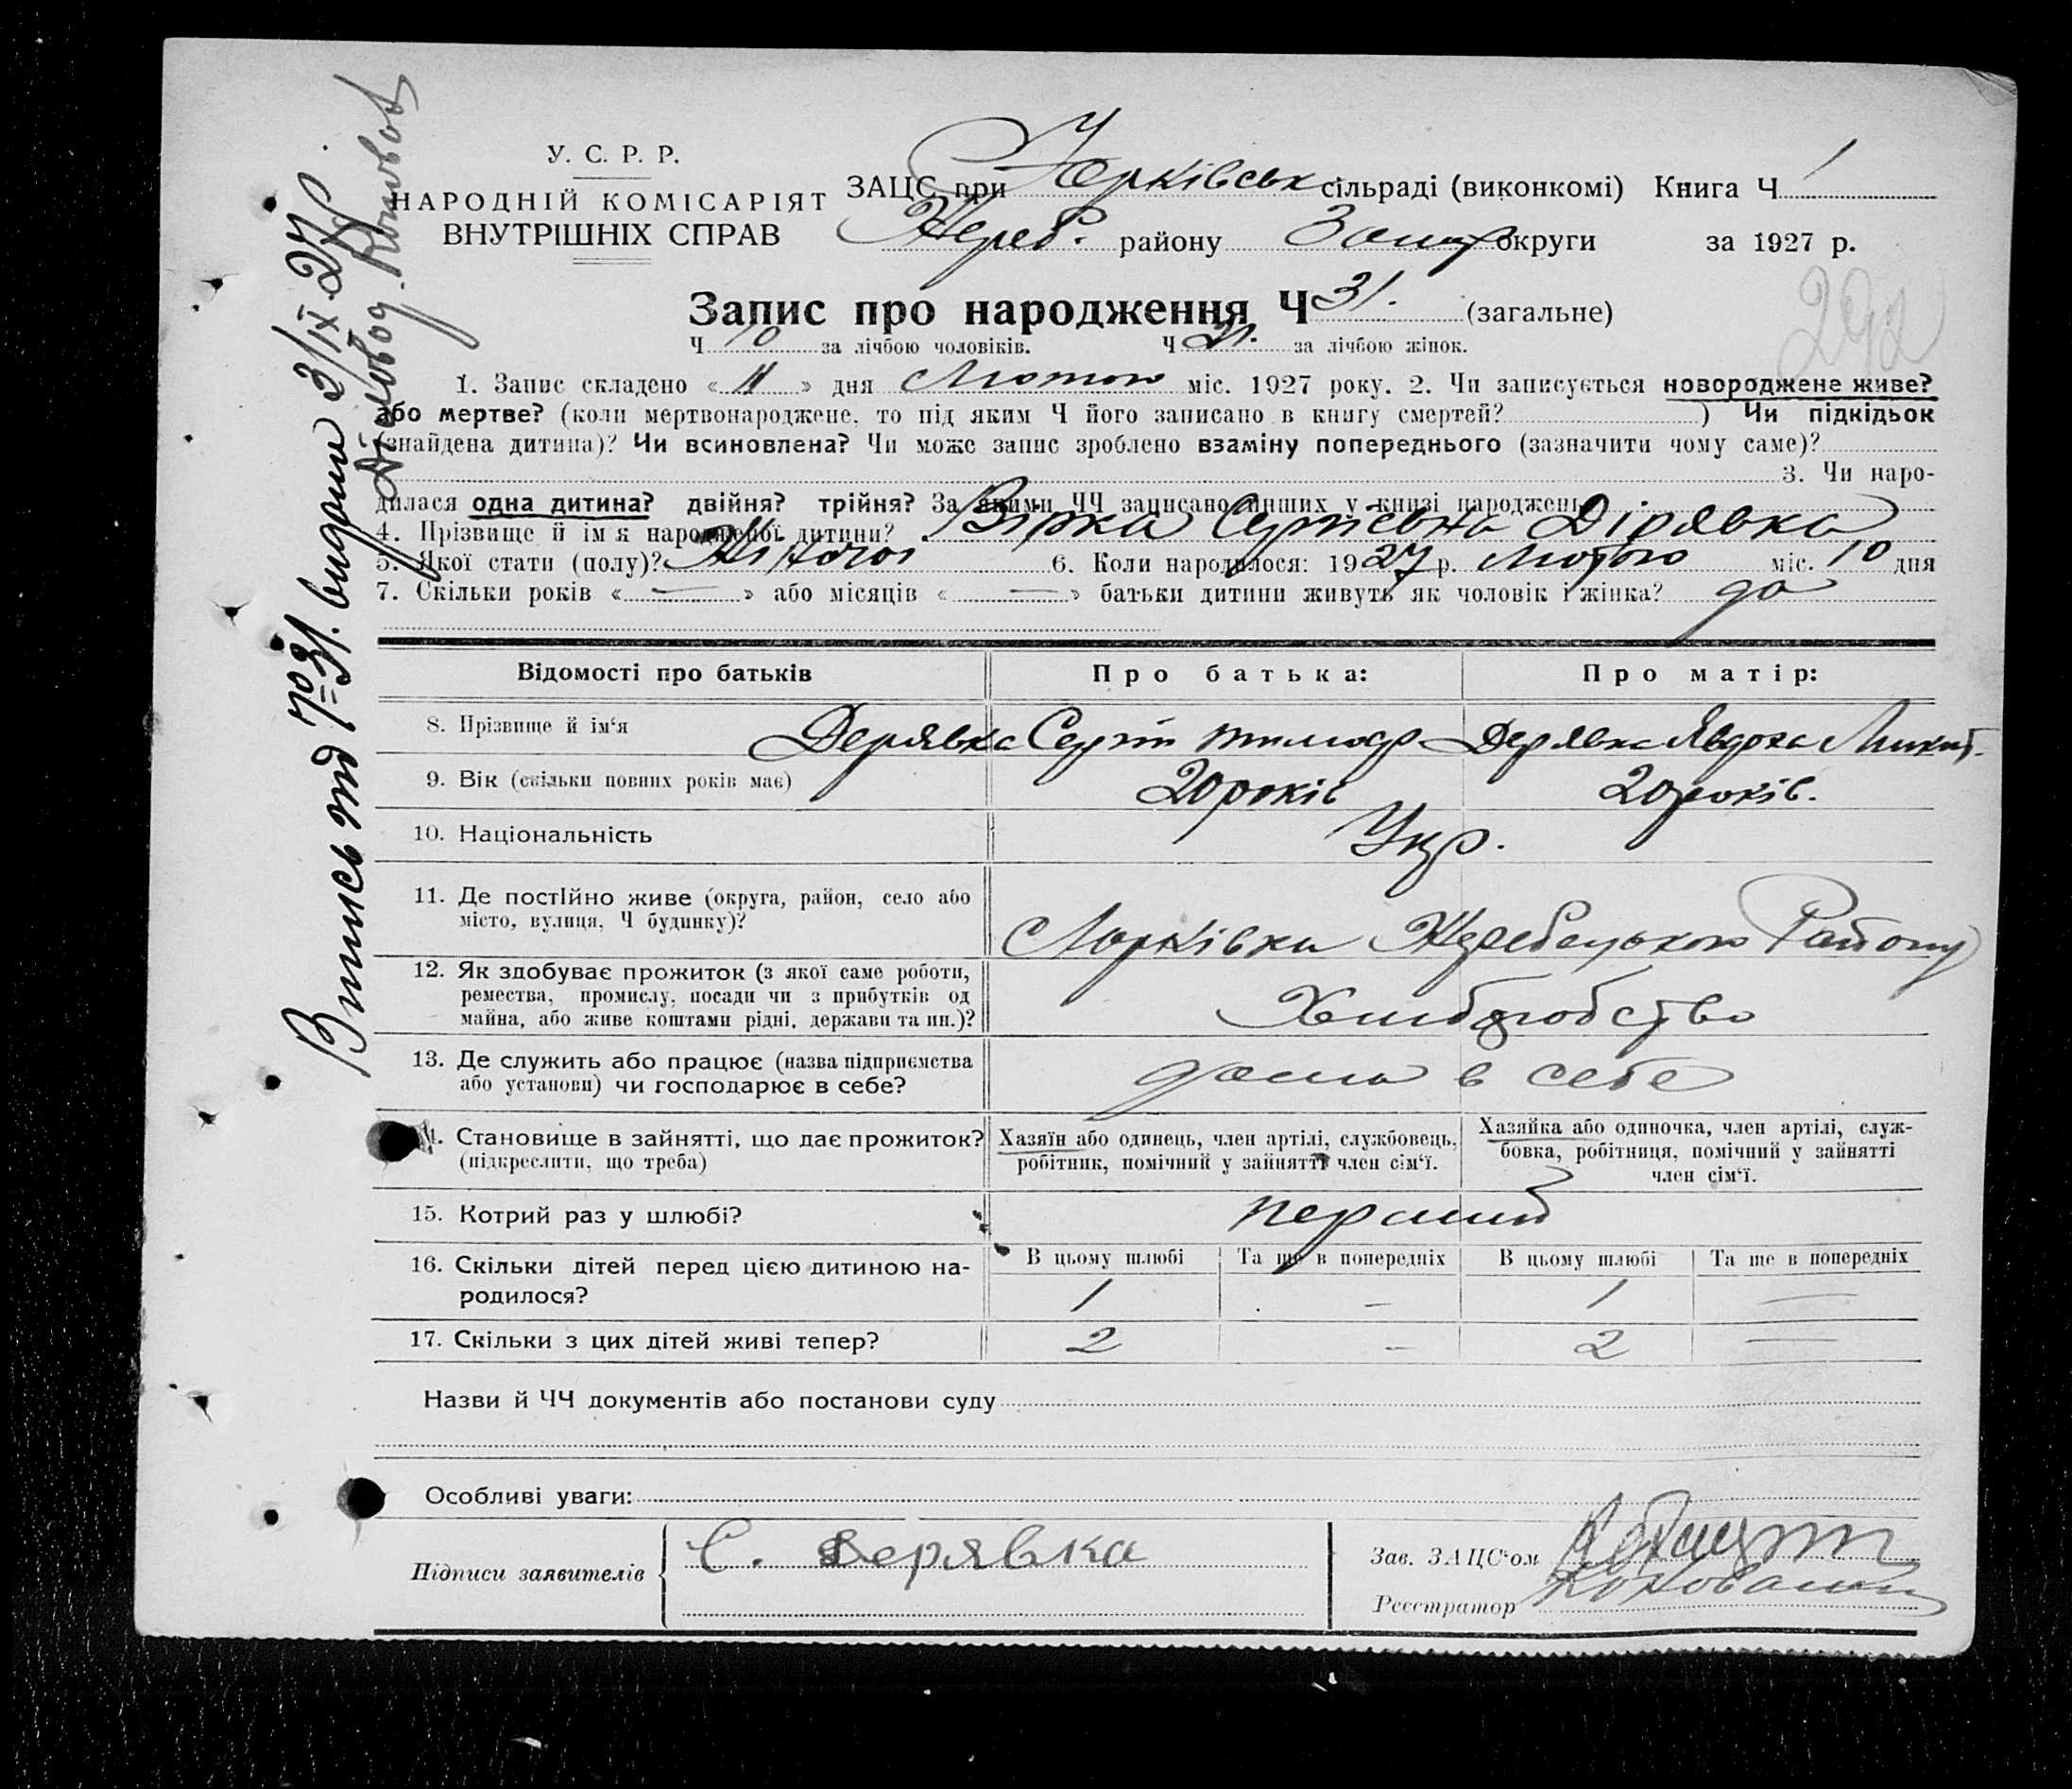 У. С. Р. Р.
НАРОДНІЙ КОМІСАРІЯТ
ВНУТРІШНІХ СПРАВ
ЗАЦС при сільраді (виконкомі) Книга Ч 1
Жереб. району округи за 1927 р.
Запис про народження Ч 31. (загальне)
Ч 10 за лічбою чоловіків. Ч 21. за лічбою жінок.
292
1. Запис складено « 11 » дня Лютого міс. 1927 року. 2. Чи записується новороджене живе?
або мертве? (коли мертвонароджене, то під яким Ч його записано в книгу смертей? ) Чи підкідьок
(знайдена дитина)? Чи всиновлена? Чи може запис зроблено взаміну попереднього (зазначити чому саме)?
3. Чи наро-
дилася одна дитина? двійня? трійня? За якими ЧЧ записано инших у книзі народжень
4. Прізвище й ім'я народженої дитини? Вірка Сергієвна Дірявка
5. Якої стати (полу)? Жіночої 6. Коли народилося: 1927 р. Лютого міс. 10 дня
7. Скільки років « — » або місяців « — » батьки дитини живуть як чоловік і жінка? да
Відомості про батьків Про батька: Про матір:
8. Прізвище й ім'я Дерявка Сергій Тимоф Дерявка Явдоха Микит.
9. Вік (скільки повних років має) 20 років 20 років.
10. Національність Укр.
11. Де постійно живе (округа, район, село або
місто, вулиця, Ч будинку)? Юрківка Жеребецького Району
12. Як здобуває прожиток (з якої саме роботи,
ремества, промислу, посади чи з прибутків од
майна, або живе коштами рідні, держави та ин.)? Хліборобство
13. Де служить або працює (назва підприємства
або установи) чи господарює в себе? дома в себе
14. Становище в зайнятті, що дає прожиток?
(підкреслити, що треба)
Хазяїн або одинець, член артілі, службовець,
робітник, помічний у зайнятті член сім'ї.
Хазяйка або одиночка, член артілі, служ-
бовка, робітниця, помічний у зайнятті
член сім'ї.
15. Котрий раз у шлюбі? перший
16. Скільки дітей перед цією дитиною на-
родилося?
В цьому шлюбі Та ще в попередніх В цьому шлюбі Та ще в попередніх
1 – 1 —
17. Скільки з цих дітей живі тепер? 2 – 2 —
Назви й ЧЧ документів або постанови суду
Особливі уваги:
Підписи заявителів С. Дерявка
Зав. ЗАЦС'ом
Реєстратор
Випись під Ч 31. видана 3/IX 27 р.
Діловод.